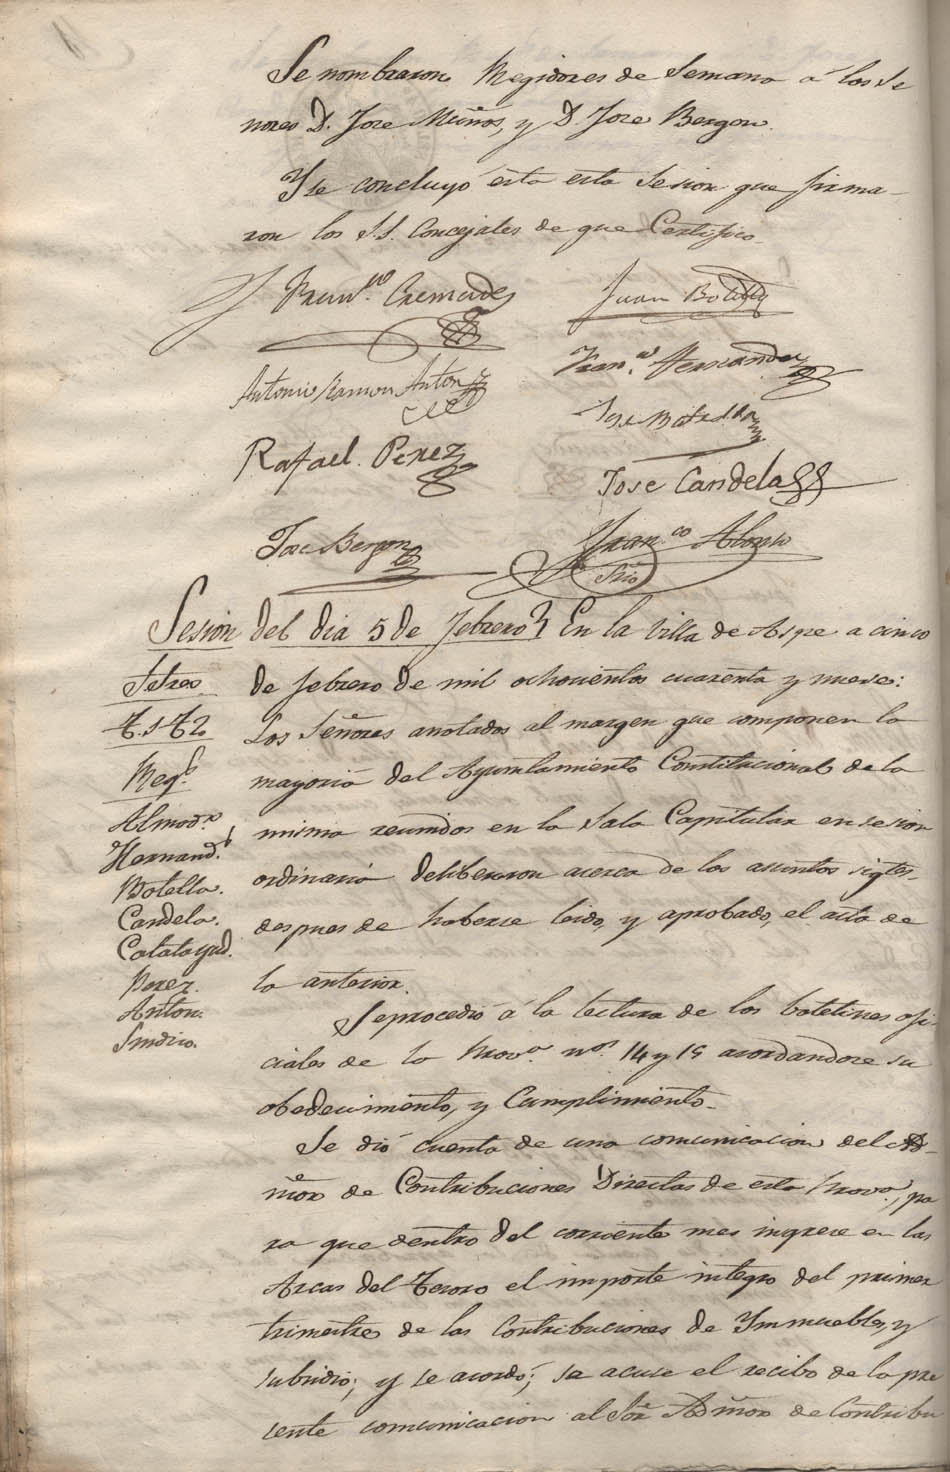 Se nombraron Regidores de Semana á los Se
ñores D. Jose Muñoz, y D. Jose Bergon.
Y se concluyó esta esta Sesion que firma-
ron los S.S. Concejales de que Certifico.
Fran.co Cremades
Juan Botella
Antonio Ramon Anton
Fran.co Hernandez
Jose Botella
Rafael Perez
Jose Candela
Jose Bergon
Fran.co
Srio
Sesion del dia 5 de Febrero
Señores
T. 1º T. 2º
Reg.s
Almodr.
Hernand.z
Botella.
Candela.
Calatayud.
Perez.
Anton.
Sindico.
En la Villa de Aspe a cinco
de febrero de mil ochocientos cuarenta y nueve:
Los Señores anotados al margen que componen la
mayoria del Ayuntamiento Constitucional de la
misma reunidos en la Sala Capitular en sesion
ordinaria deliberaron acerca de los asuntos sigtes.
despues de haberse leido, y aprobado, el acta de
la anterior.
Se procedió á la lectura de los boletines ofi-
ciales de la Prov.a nos. 14 y 15 acordandose su
obedecimiento, y Cumplimiento.
Se dió cuenta de una comunicacion del Ad-
mor de Contribuciones Directas de esta Prov.a, pa
ra que dentro del corriente mes ingrese en las
Arcas del Tesoro el importe integro del primer
trimestre de las Contribuciones de Ynmuebles, y
subsidio; y se acordó; se acuse el recibo de la pre
sente comunicacion al Sor. Admor de Contribu